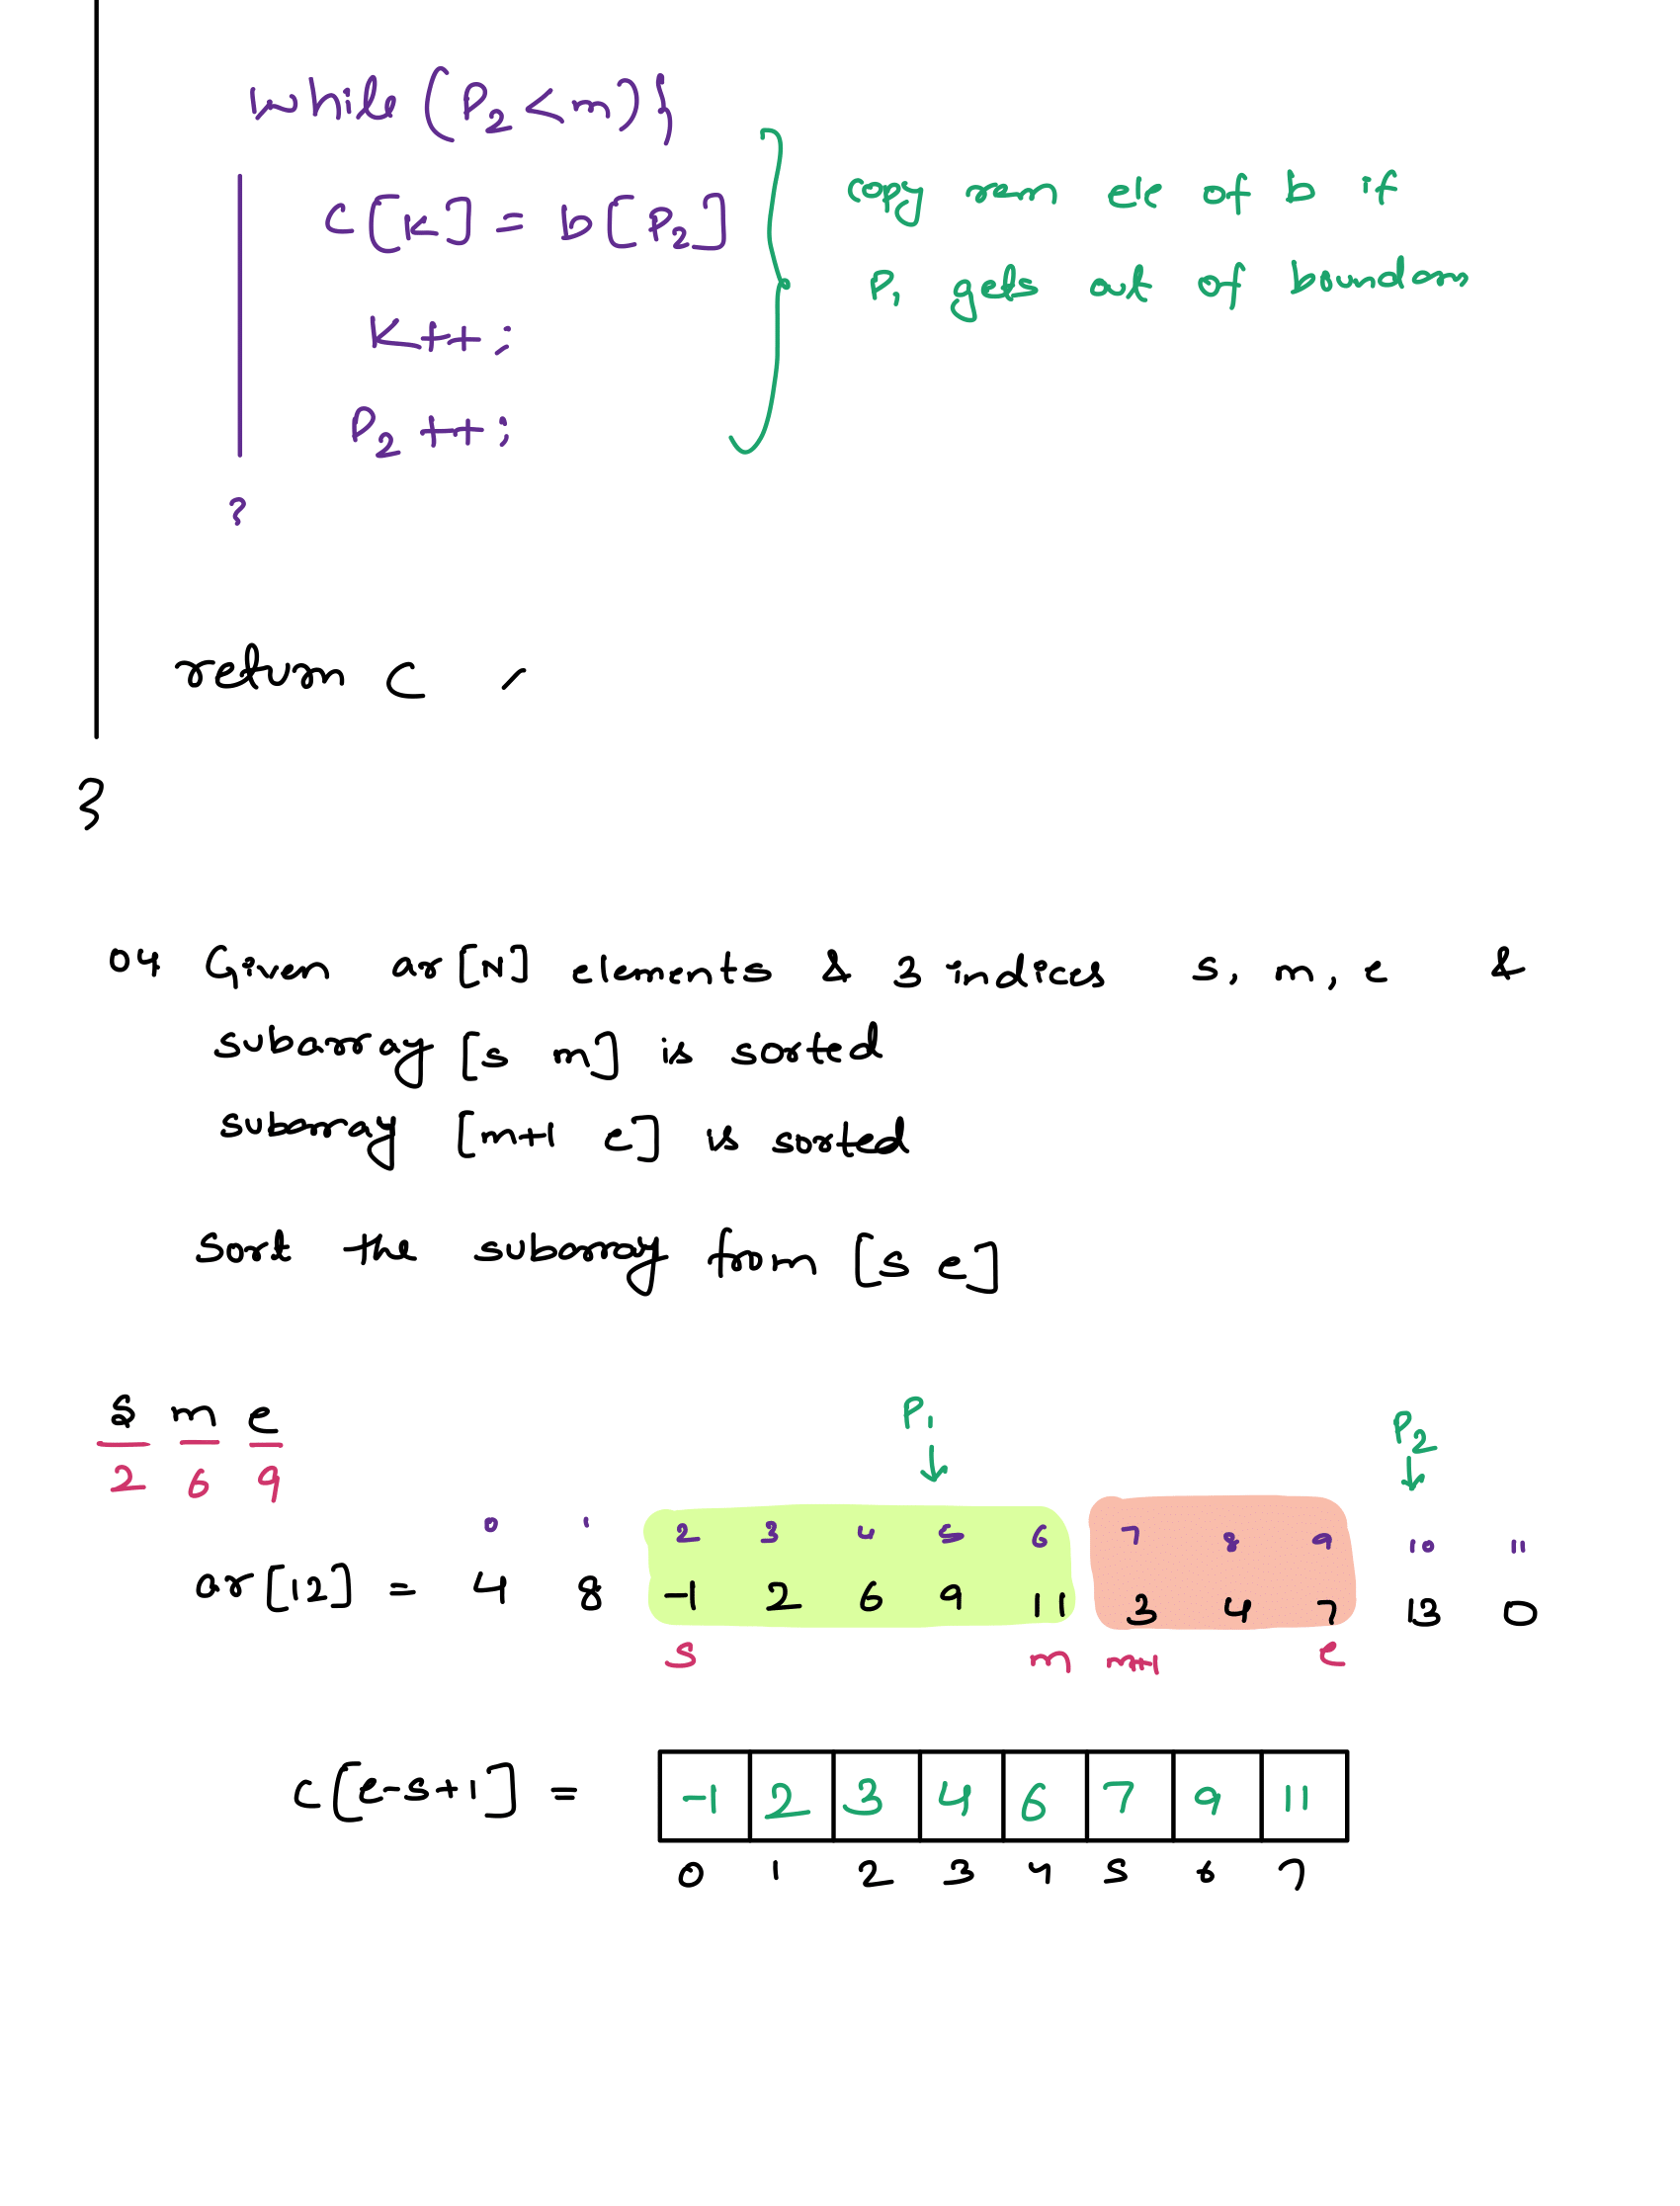 while (P2<m) {
c[k] = b[P2]
k++;
P2 ++;
}
copy rem ele of b if
P1 gets out of boundary
return c ;
}
04 Given ar[N] elements & 3 indices s, m, e &
subarray [s m] is sorted
subarray [m+1 e] is sorted
Sort the subarray from [s e]
s m e
2 6 9
P1 P2
0 1 2 3 4 5 6 7 8 9 10 11
ar[12] = 4 8 -1 2 6 9 11 3 4 7 13 0
s m m+1 e
c[e-s+1] = -1 2 3 4 6 7 9 11
0 1 2 3 4 5 6 7